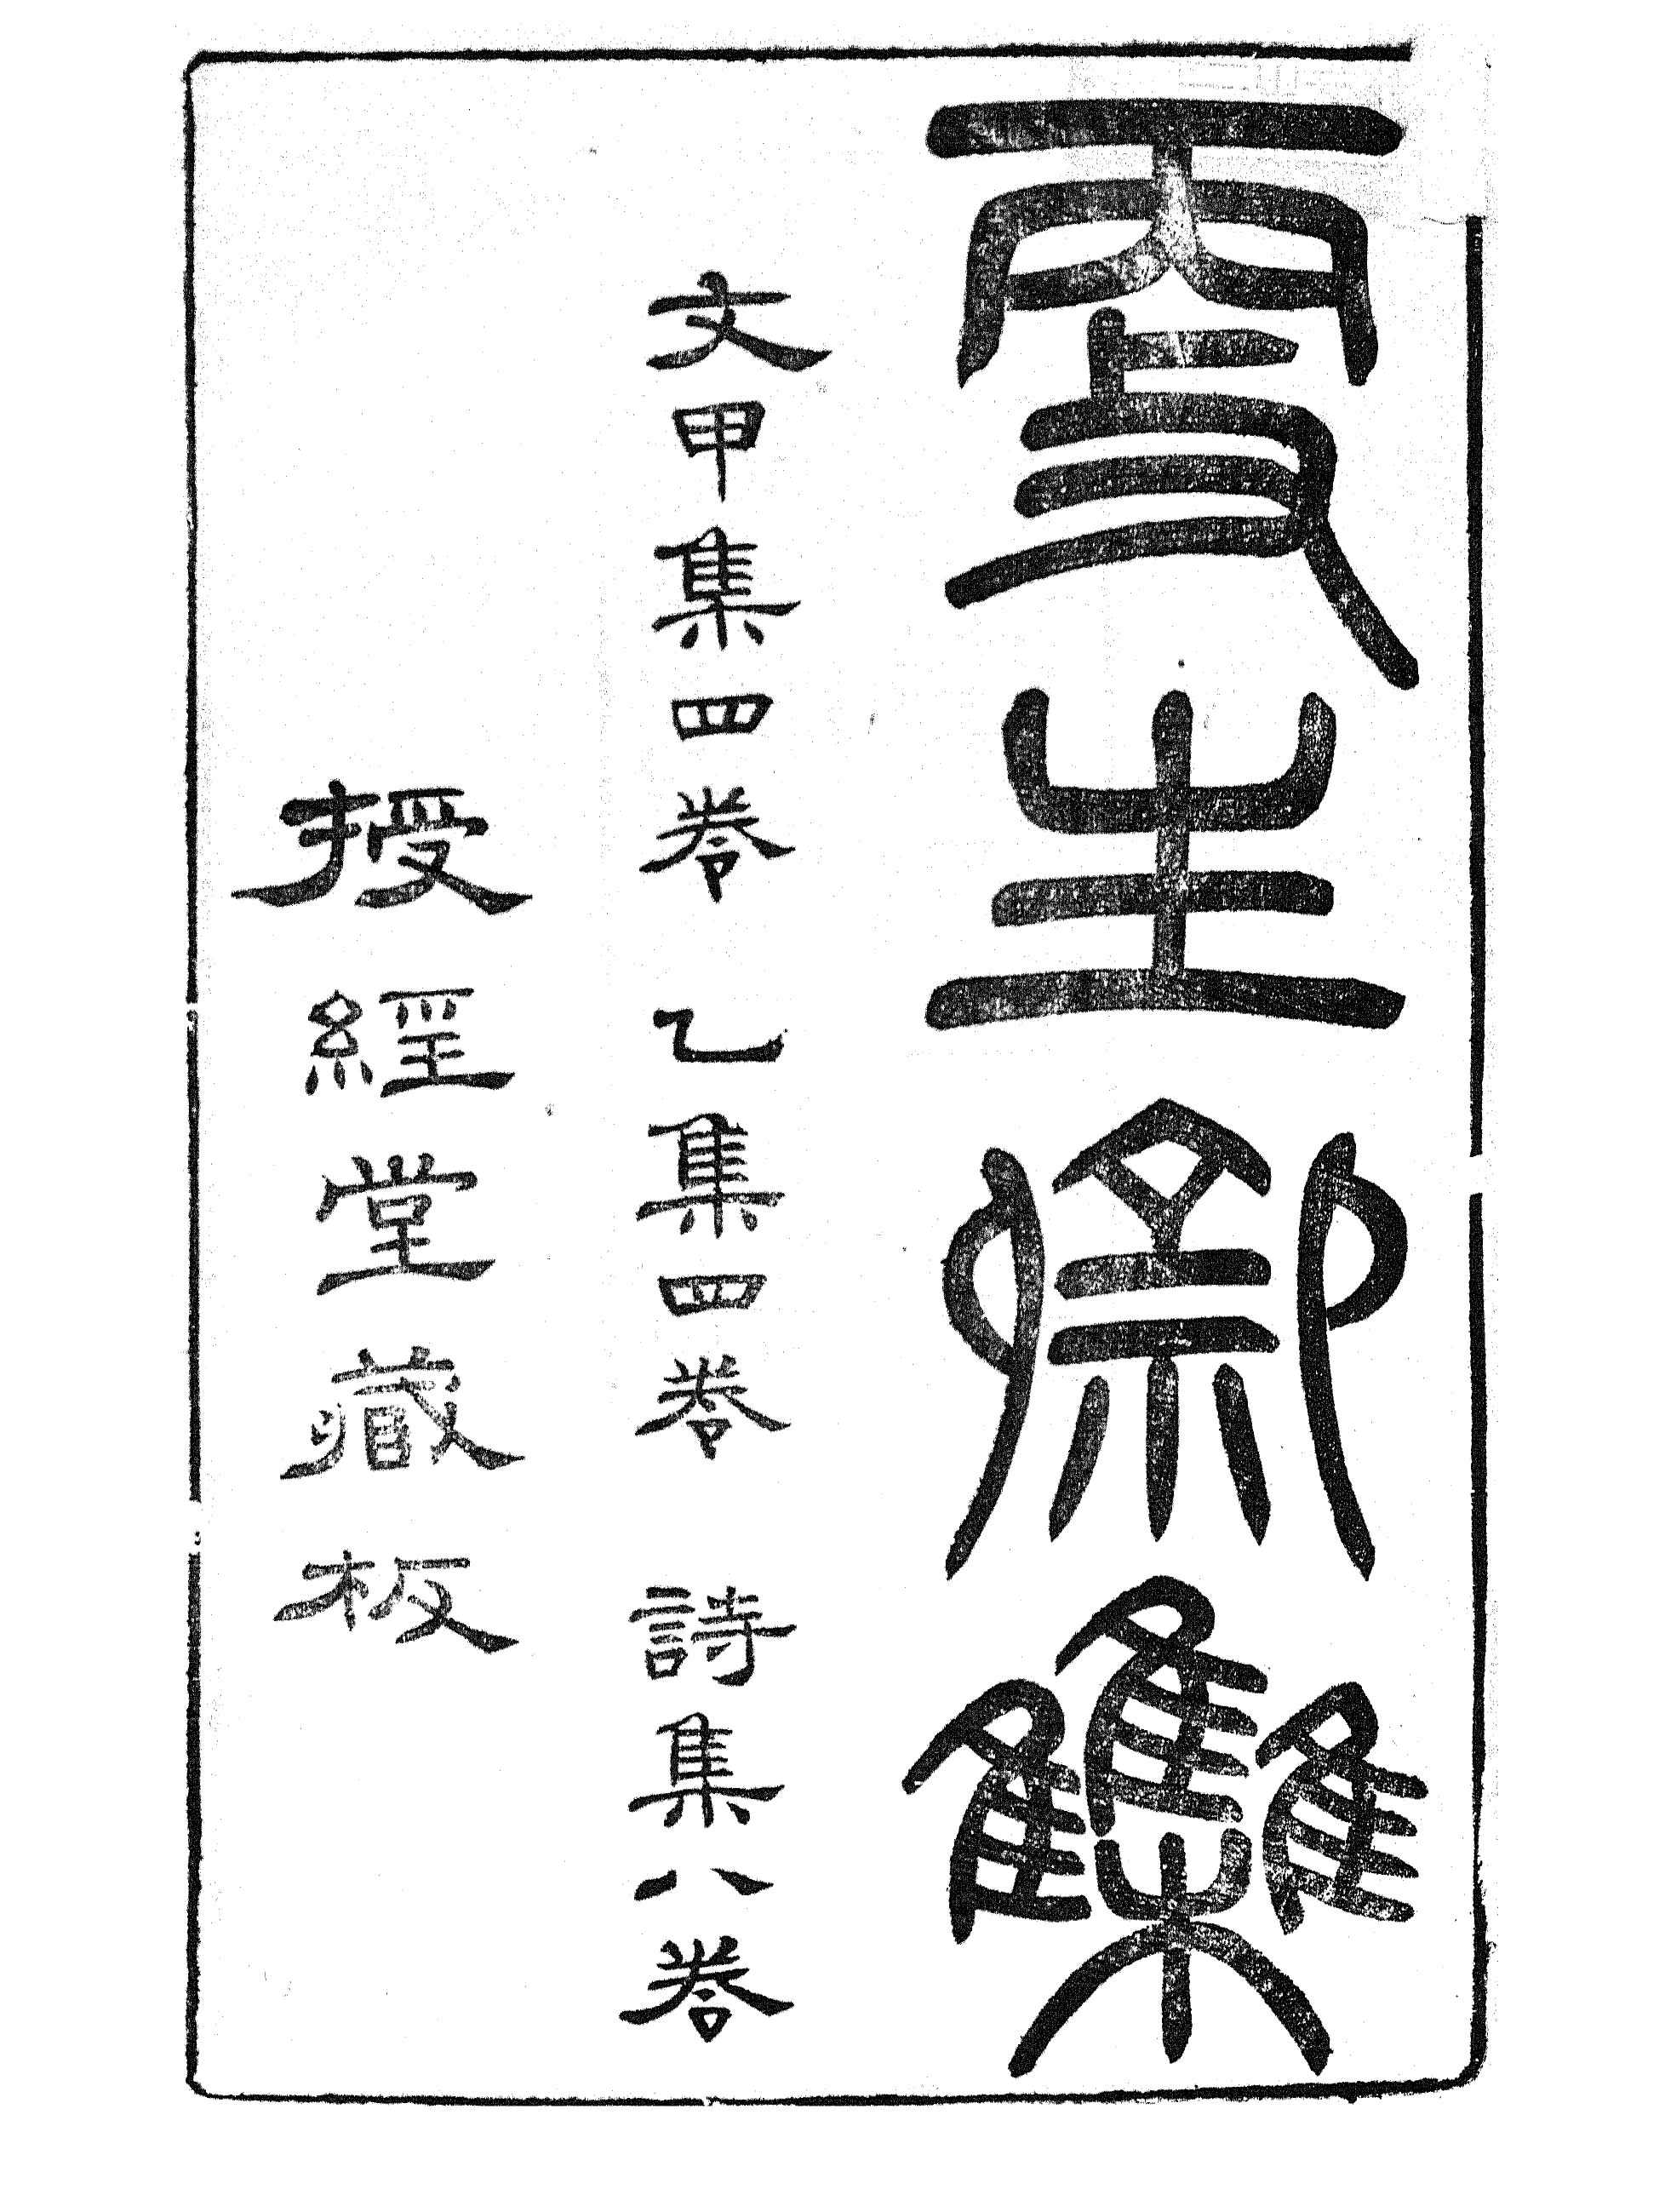 更生齋集
文甲集四卷 乙集四卷 詩集八卷
授經堂藏板